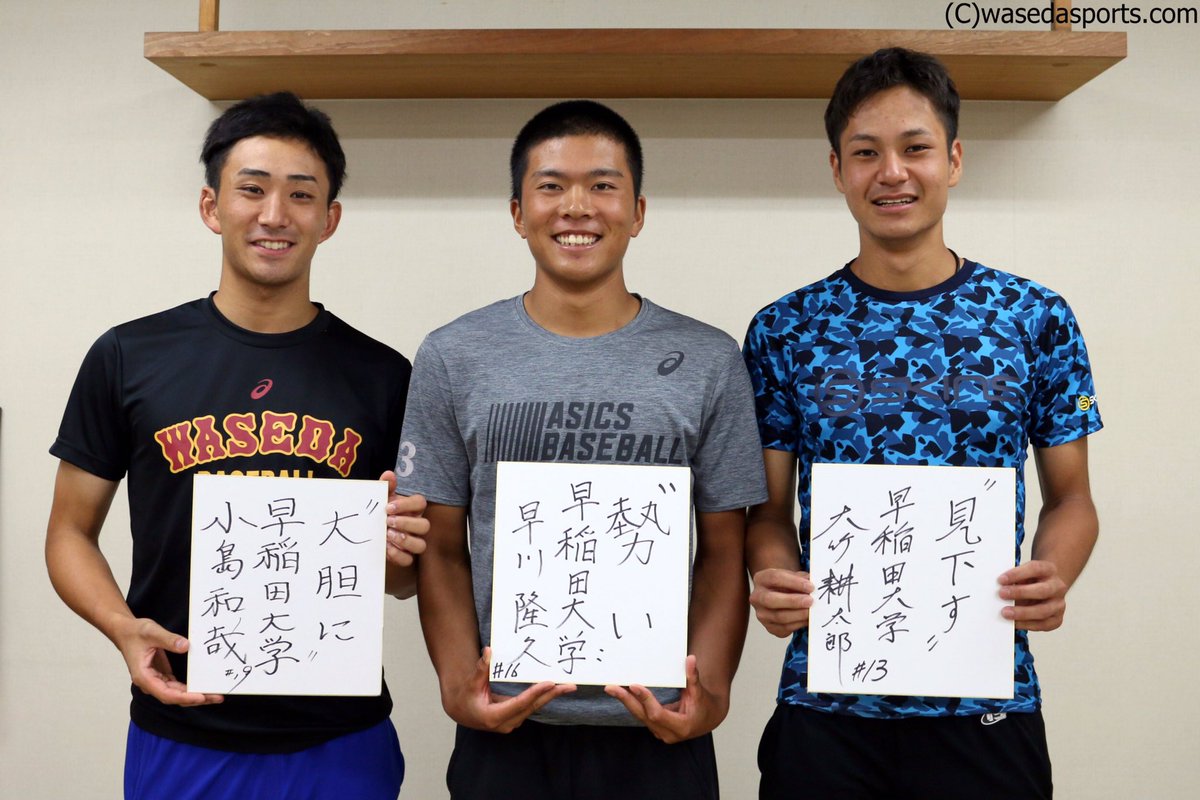 (C)wasedasports.com
WASEDA
BASEBALL
"大胆に"
早稲田大学
小島和哉
#19
3
ASICS
BASEBALL
"勢い"
早稲田大学
早川隆久
#16
SKINS
"見下す"
早稲田大学
大竹耕太郎
#13